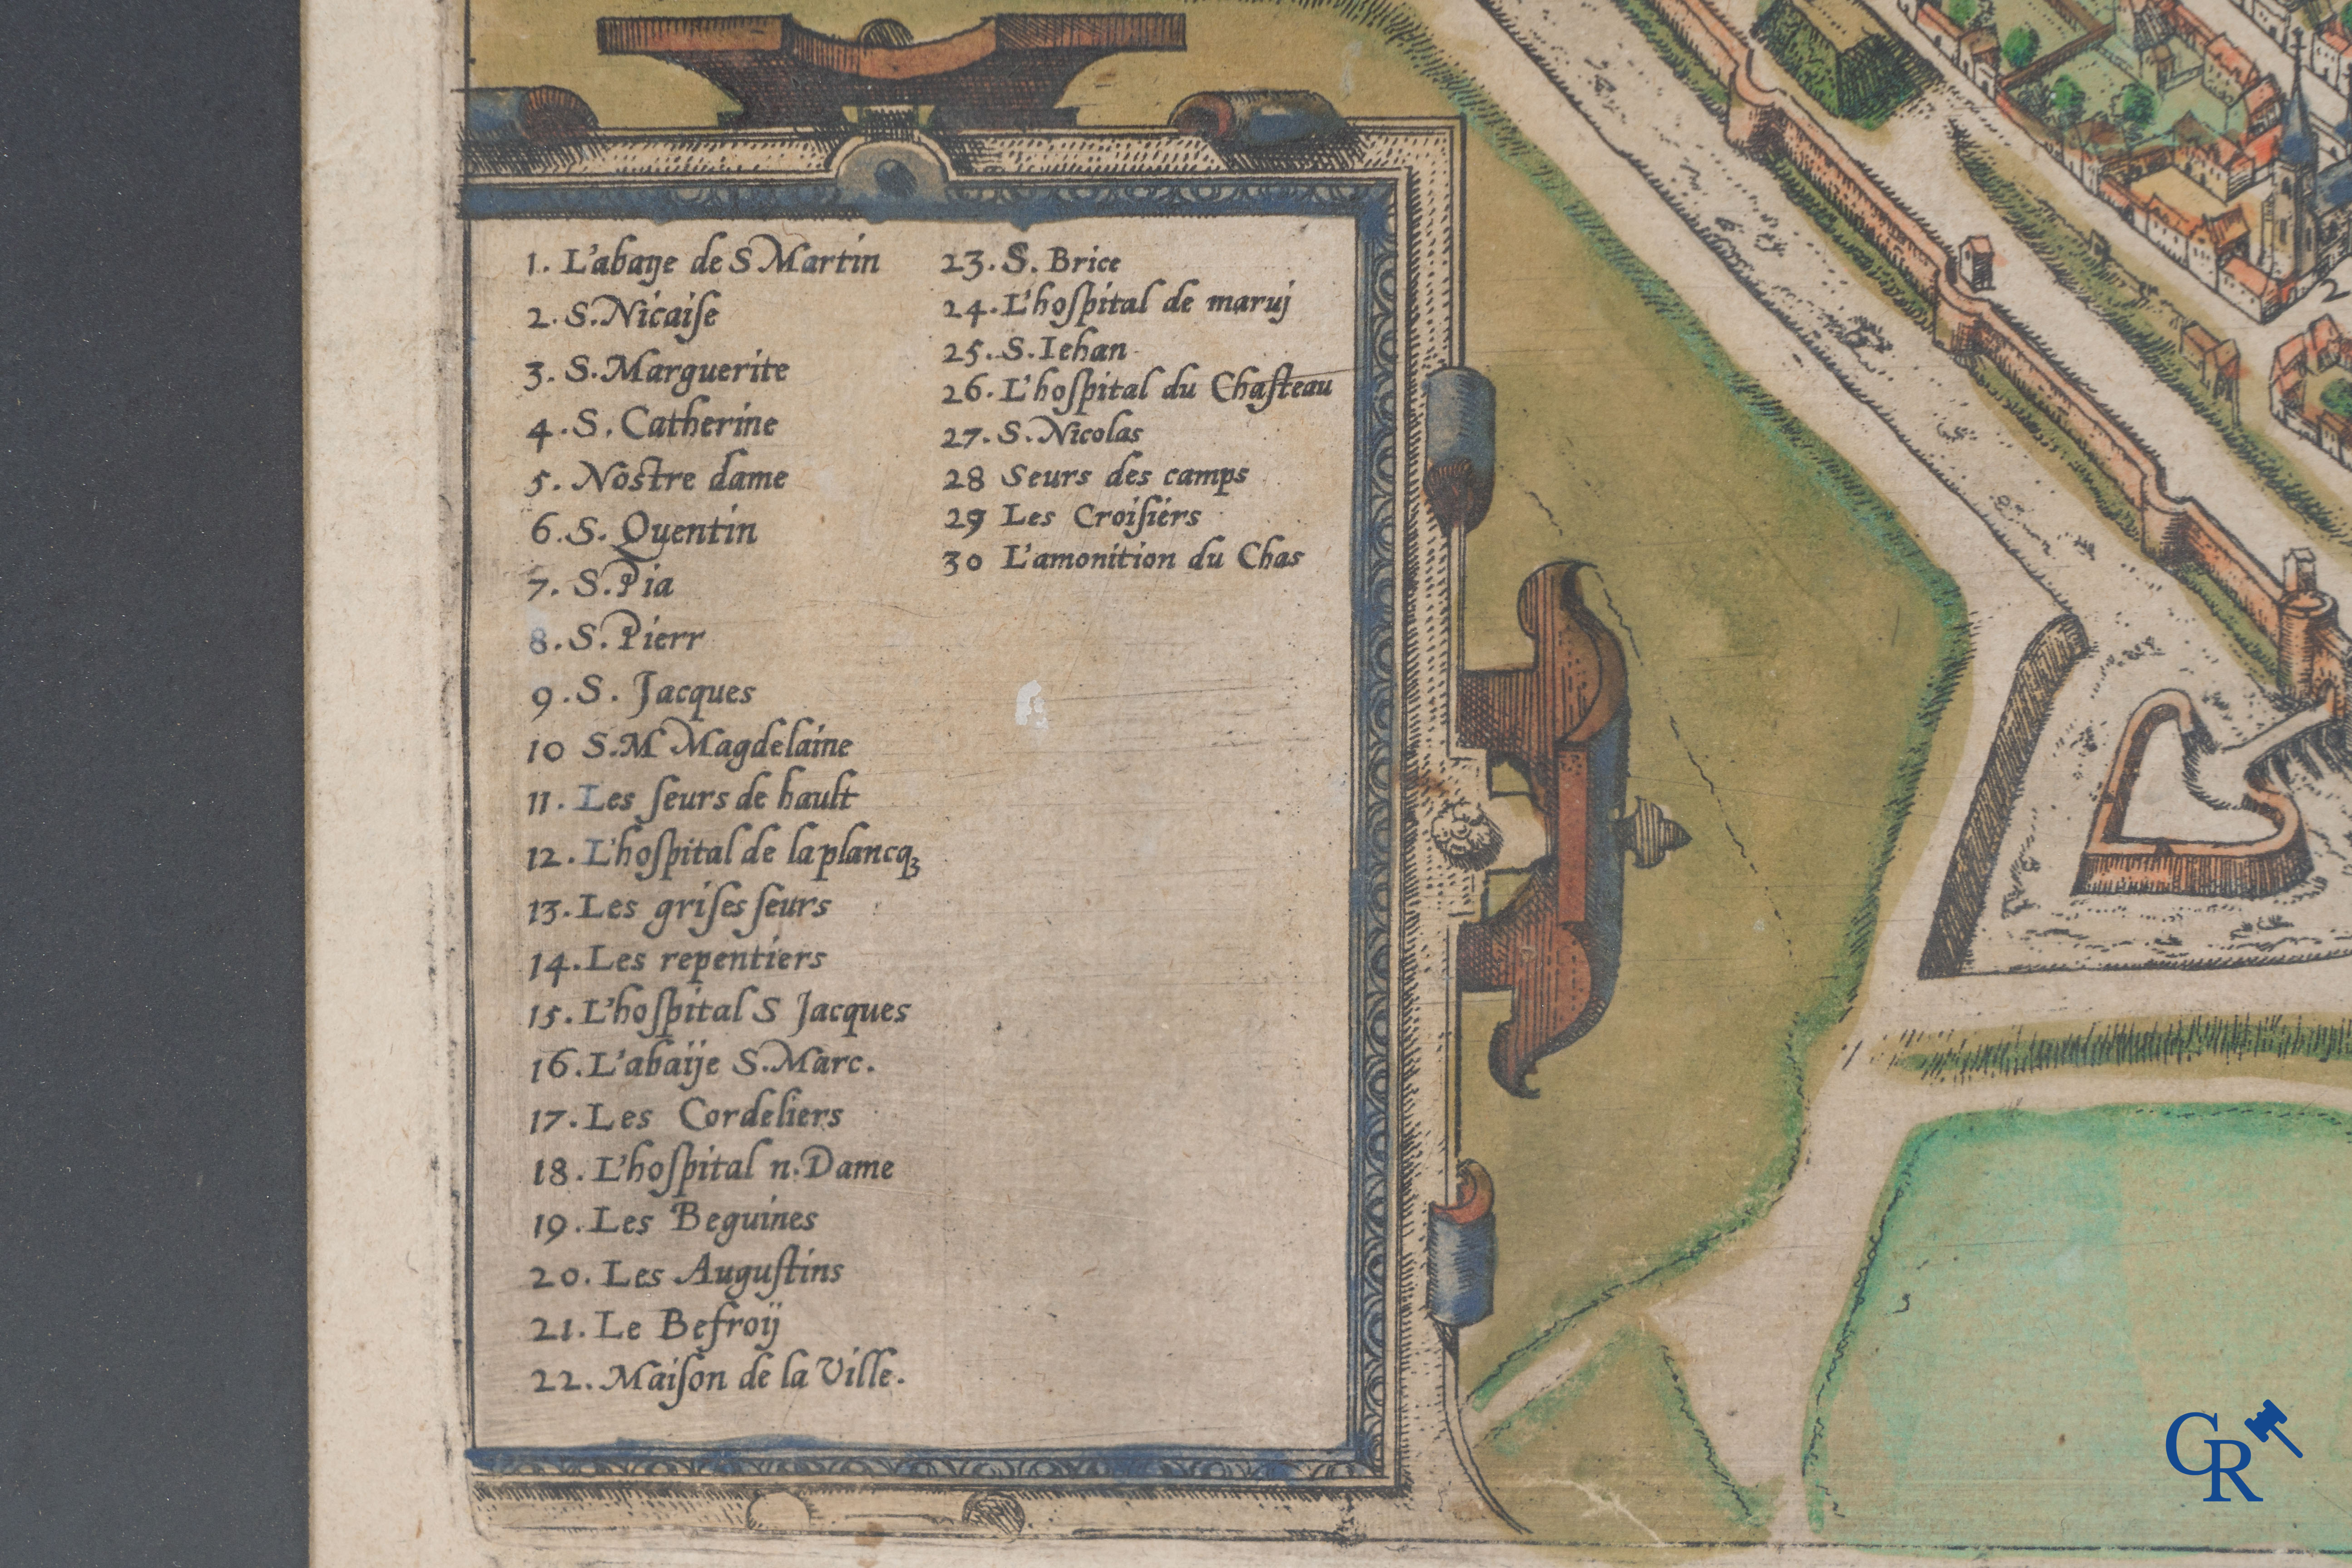 1. L'abaye de S Martin
2. S. Nicaiſe
3. S. Marguerite
4. S. Catherine
5. Noſtre dame
6. S. Quentin
7. S. Pia
8. S. Pierr
9. S. Jacques
10 S. M Magdelaine
11. Les ſeurs de hault
12. L'hoſpital de la plancqꝫ
13. Les griſes ſeurs
14. Les repentiers
15. L'hoſpital S Jacques
16. L'abaÿe S. Marc.
17. Les Cordeliers
18. L'hoſpital n. Dame
19. Les Beguines
20. Les Auguſtins
21. Le Befroÿ
22. Maiſon de la Ville.
23. S. Brice
24. L'hoſpital de maruj
25. S. Iehan
26. L'hoſpital du Chaſteau
27. S. Nicolas
28 Seurs des camps
29 Les Croiſiers
30 L'amonition du Chas
2
CR